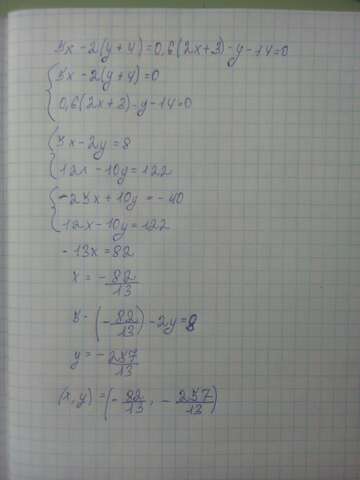 5x - 2(y+4)=0,6(2x+3)-y-14=0
5x - 2(y+4)=0
0,6(2x+3)-y-14=0
5x-2y=8
12x-10y=122
-25x+10y=-40
12x-10y=122
-13x=82
x=-82/13
5·(-82/13)-2y=8
y=-257/13
(x,y)=(-82/13, -257/13)